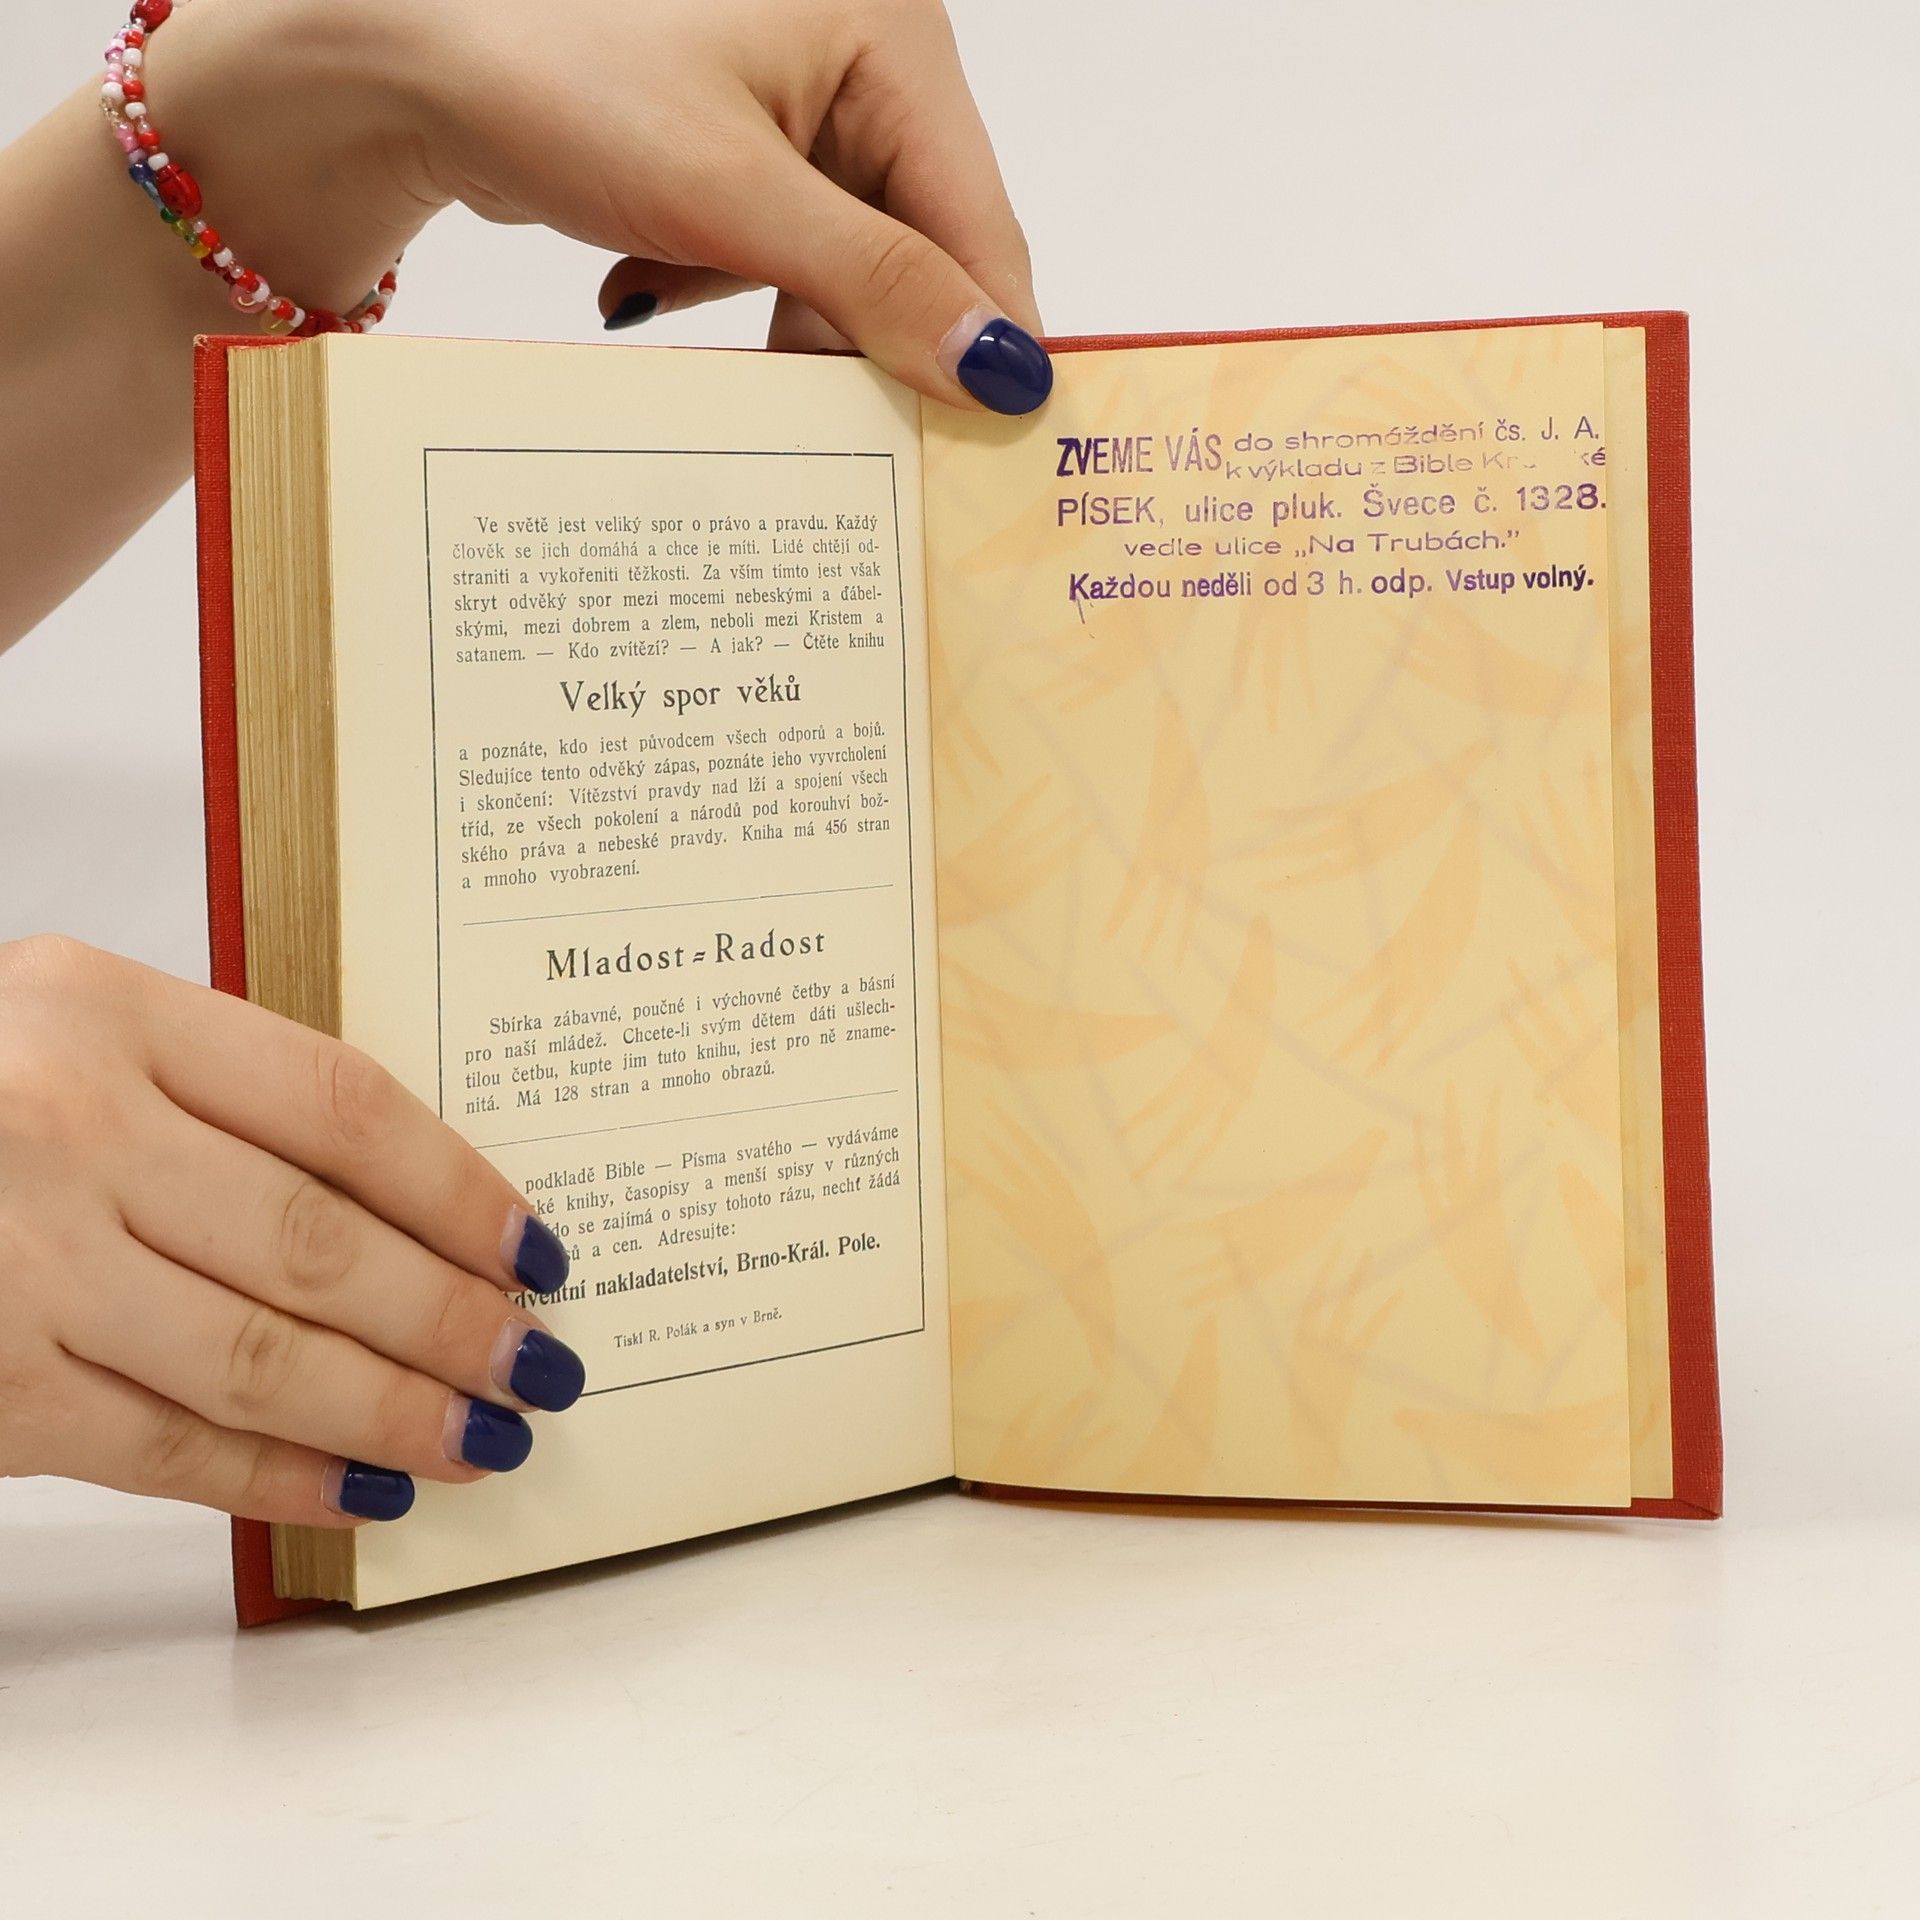 Ve světě jest veliký spor o právo a pravdu. Každý
člověk se jich domáhá a chce je míti. Lidé chtějí od-
straniti a vykořeniti těžkosti. Za vším tímto jest však
skryt odvěký spor mezi mocemi nebeskými a ďábel-
skými, mezi dobrem a zlem, neboli mezi Kristem a
satanem. — Kdo zvítězí? — A jak? — Čtěte knihu
Velký spor věků
a poznáte, kdo jest původcem všech odporů a bojů.
Sledujíce tento odvěký zápas, poznáte jeho vyvrcholení
i skončení: Vítězství pravdy nad lží a spojení všech
tříd, ze všech pokolení a národů pod korouhví bož-
ského práva a nebeské pravdy. Kniha má 456 stran
a mnoho vyobrazení.
Mladost-Radost
Sbírka zábavné, poučné i výchovné četby a básní
pro naší mládež. Chcete-li svým dětem dáti ušlech-
tilou četbu, kupte jim tuto knihu, jest pro ně zname-
nitá. Má 128 stran a mnoho obrazů.
podkladě Bible — Písma svatého — vydáváme
knihy, časopisy a menší spisy v různých
se zajímá o spisy tohoto rázu, nechť žádá
a cen. Adresujte:
Adventní nakladatelství, Brno-Král. Pole.
Tiskl R. Polák a syn v Brně.
ZVEME VÁS do shromáždění čs. J. A.
k výkladu z Bible
PÍSEK, ulice pluk. Švece č. 1328.
vedle ulice „Na Trubách.”
Každou neděli od 3 h. odp. Vstup volný.